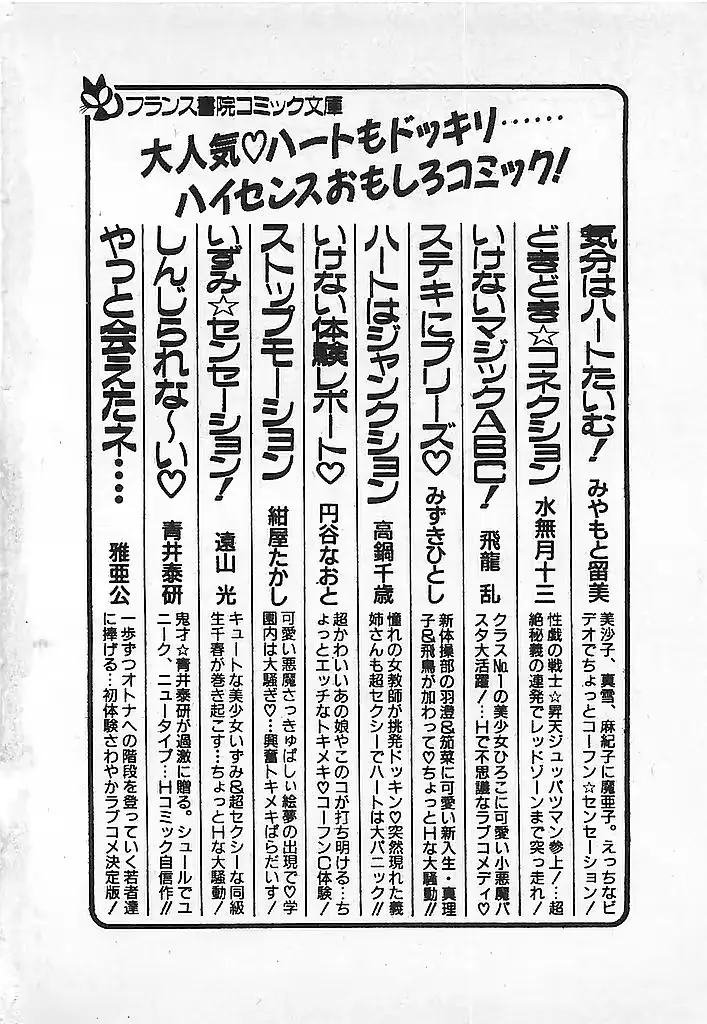 フランス書院コミック文庫
大人気♡ハートもドッキリ……
ハイセンスおもしろコミック!
気分はハートたいむ!
みやもと留美
美沙子、真雪、麻紀子に魔亜子。えっちなビ
デオでちょっとコーフン☆センセーション!
どきどき☆コネクション
水無月十三
性戯の戦士☆昇天ジュッパツマン参上!…超
絶秘義の連発でレッドゾーンまで突っ走れ!
いけないマジックABC!
飛龍 乱
クラス№1の美少女ひろこに可愛い小悪魔パ
スタ大活躍!…Hで不思議なラブコメディ♡
ステキにプリーズ♡
みずきひとし
新体操部の羽澄&茄菜に可愛い新入生・真理
子&飛鳥が加わって♡ちょっとHな大騒動!!
ハートはジャンクション
高鍋千歳
憧れの女教師が挑発ドッキン♡突然現れた義
姉さんも超セクシーでハートは大パニック!!
いけない体験レポート♡
円谷なおと
超かわいいあの娘やこのコが打ち明ける…ち
ょっとエッチなトキメキ♡コーフンC体験!
ストップモーション
紺屋たかし
可愛い悪魔さっきゅばしぃ絵夢の出現で♡学
園内は大騒ぎ♡…興奮トキメキぱらだいす!
いずみ☆センセーション!
遠山 光
キュートな美少女いずみ&超セクシーな同級
生千春が巻き起こす…ちょっとHな大騒動!
しんじられな〜い♡
青井泰研
鬼才☆青井泰研が過激に贈る。シュールでユ
ニーク、ニュータイプ…Hコミック自信作!!
やっと会えたネ…
雅亜公
一歩ずつオトナへの階段を登っていく若者達
に捧げる…初体験さわやかラブコメ決定版!